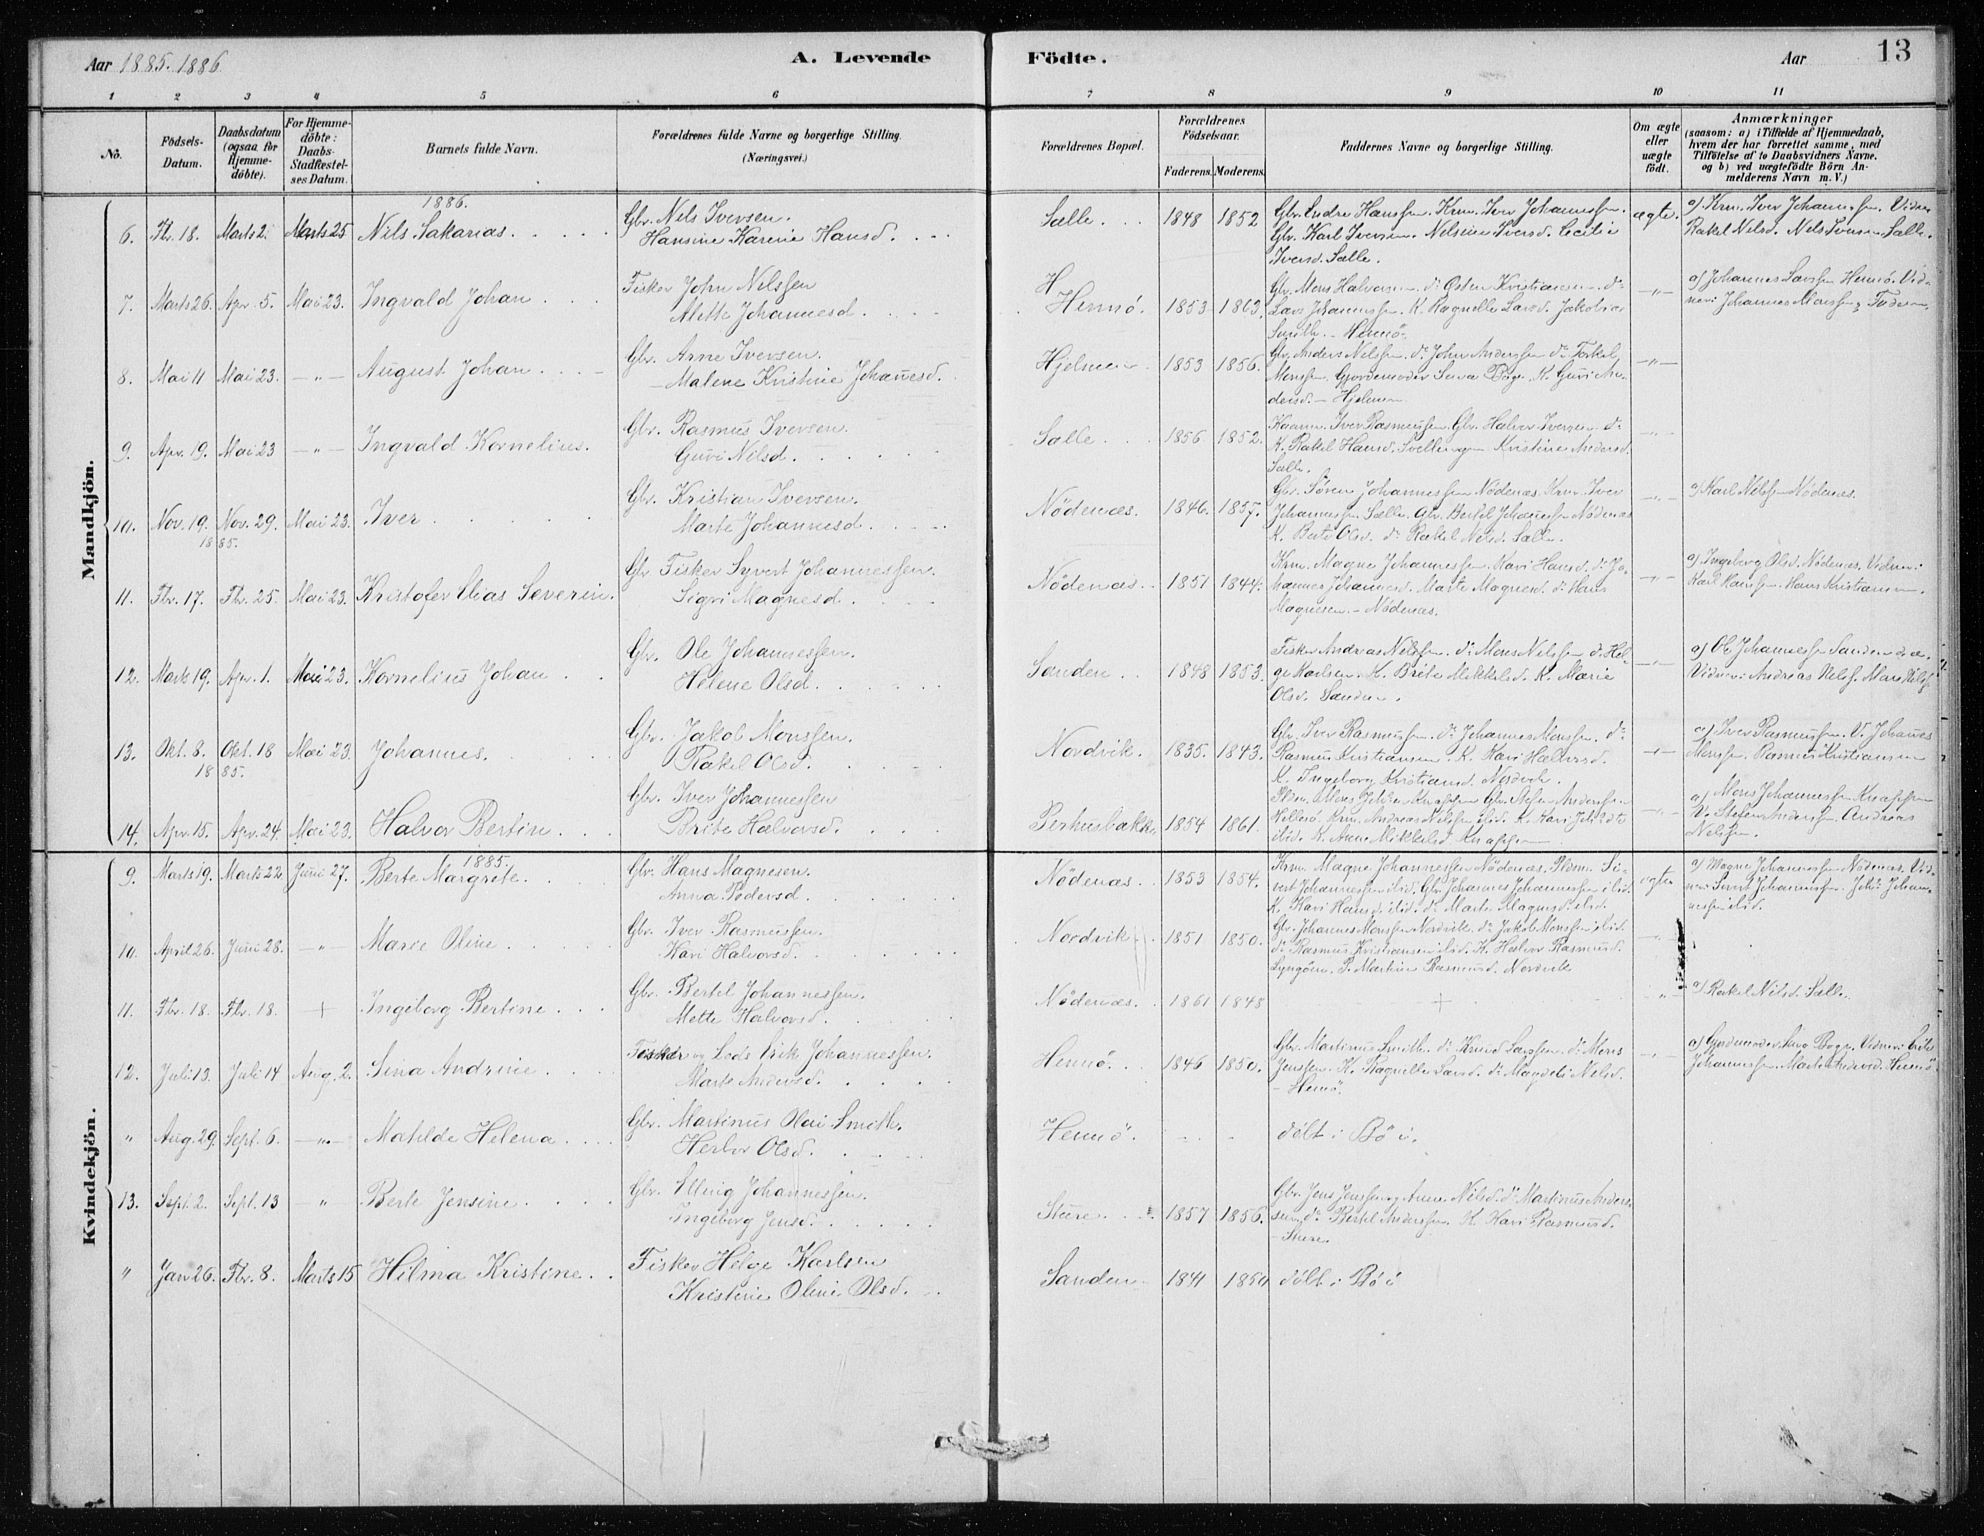 Aar 1885. 1886
A. Levende
Födte.
Aar
13
1 2 3 4 5 6 7 8 9 10 11
No.
Födsels-Datum.
Daabsdatum (ogsaa for Hjemme-döbte).
For Hjemme-döbte: Daabs-Stadfæstel-ses Datum.
Barnets fulde Navn.
Forældrenes fulde Navne og borgerlige Stilling. (Næringsvei.)
Forældrenes Bopæl.
Forældrenes Födselsaar.
Faderens. Moderens.
Faddernes Navne og borgerlige Stilling.
Om ægte eller uægte födt.
Anmærkninger
(saasom: a) i Tilfælde af Hjemmedaab,
hvem der har forrettet samme, med
Tilföielse af to Daabsvidners Navne.
og b) ved uægtefödte Börn An-
melderens Navn m. V.)
Mandkjön.
1886.
6. Fb. 18. Marts 2. Marts 25 Nils Sakarias. Gbr. Nils Iversen.
Hansine Karine Hansd.
Sælle. 1848 1852 Gbr. Endre Hanssen. Krm. Iver Johannessen.
Gbr. Karl Iversen. Nelsine Iversd. Cecilie
Iversd. Sælle.
ægte. a) Krm. Iver Johannessen. Vidn.
Rakel Nilsd. Nils Iversen Sælle.
7. Marts 26. Apr. 5. Mai 23. Ingvald Johan Fisker John Nilssen
Alette Johannesd.
Hennö. 1853 1863. Gbr. Mons Halvorsen. do Østen Kristiansen. do
Lars Johannessen. K. Ragnille Larsd. Jakobia
Smith. - Hennö.
-"- a) Johannes Larssen Hennö. Vid-
ner: Johannes Monssen, Faderen.
8. Mai 11 Mai 23. -"- August Johan Gbr. Arne Iversen.
Malene Kristine Johanesd.
Hjelmen 1853 1856. Gbr. Anders Nelssen. do John Anderssen do Torkel
Monssen. Gjordemoder K. Guri An-
dersd. - Hjelmen
-"-
9. Apr. 19. Mai 23 -"- Ingvald Kornelius. Gbr. Rasmus Iversen.
Guri Nilsd.
Sælle 1856 1852. Iver Rasmussen. Gbr. Halvor Iversen do
K. Rakel Hansd. Kristine Andersd.
Sælle.
-"-
10. Nov. 19. Nov. 29. Mai 23. Iver Gbr. Kristian Iversen.
1885.
Marte Johannesd.
Nödenæs. 1846. 1857. Gbr. Sören Johannessen Nödenæs. Krm. Iver
Johannessen Sælle. Gbr. Bertel Johannessen Nödenæs
K. Berte Olsd. do Rakel Nilsd. Sælle.
-"- a) Karl Nilssen Nödenæs.
11. Fbr. 17. Fbr. 25. Mai 23. Kristofer Elias Severin. Gbr Fisker Syvert Johannessen.
Sigri Magnesd.
Nödenæs. 1851 1844. Krm. Magne Johannessen. Kari Hansd. do Jo-
hannes Johannesd. Marte Magnesd. do Hans
Magnesen. - Nödenæs.
-"- a) Ingeborg Olsd. Nödenæs. Vidner:
Karl Hanssen. Hans Kristiansen.
12. Marts 19. Apr. 1. Mai 23. Kornelius Johan Gbr. Ole Johannessen.
Helene Olsd.
Sanden. 1848 1853. Fisker Andreas Nelssen. do Mons Nelssen do Hel-
ge Karlsen. K. Brite Mikkelsd. K. Marie
Olsd. Sanden.
-"- a) Ole Johannessen Sanden
Vidner: Andreas Nelss. Mons Nilss.
13. Okt. 8. Okt. 18 Mai 23. Johannes. Gbr. Jakob Monssen.
1885.
Rakel Olsd.
Nordvik. 1835. 1843. Gbr. Iver Rasmussen. do Johannes Monssen. do
Rasmus Kristiansen. K. Kari Halvorsd.
K. Ingeborg Kristiansd. Nordvik.
-"- a) Iver Rasmussen. V. Johanes
Monssen. Rasmus Kristiansen
14. Apr. 15. Apr. 24. Mai 23. Halvor Bertin Gbr. Iver Johannessen
Brite Halvorsd.
1854 1861. Mons Gbr. Stefen Anderssen
Krm. Andreas Nelssen ilid. K. Kari
ilid. K. Anne Mikkelsd. Knappen
-"- a) Mons Johannessen Knappen
V. Stefen Anderssen Andreas
Nelssen.
Kvindekjön.
1885.
9. Marts 19. Marts 22 Juni 27. Berte Margrete. Gbr. Hans Magnesen.
Anna Pedersd.
Nödenæs. 1853 1854. Krm. Magne Johannessen Nödenæs. Si-
vert Johannessen ilid. Gbr. Johannes Johannessen ilid.
K. Kari Hansd. ilid. do Marte Magnesd. ilid
ægte a) Magne Johannessen Nödenæs. Vid-
ner Sivert Johannessen. Johs. Johan-
nessen ilid.
10. April 26. Juni 28. -"- Marie Oline. Gbr. Iver Rasmussen.
Kari Halvorsd.
Nordvik. 1851 1850. Gbr. Johannes Monssen Nordvik. do Jakob Monssen ilid
do Rasmus Kristiansen ilid. K. Halvor Rasmusd.
Lyngöen. P. Martine Rasmusd. Nordvik
-"-
11. Fbr. 18. Fbr. 18. + Ingeborg Bertine Gbr. Bertel Johannessen.
Mette Halvorsd.
Nödenæs. 1861 1848 + "- a) Rakel Nilsd. Sælle.
12. Juli 13. Juli 14 Aug. 2. Sina Andrine. Fisker og Lods Erik Johannessen.
Marte Andersd.
Hennö. 1846 1850. Gbr. Martinus Smith. do Knud Larssen. do Mons
Jenssen. K. Ragnille Larsd. do Magdeli Nelsd.
- Hennö.
-"- a) Gjordemoder Vidner: Erik
Johannessen. Marte Andersd. Hennö.
" Aug. 29. Sept. 6. -"- Matilde Helena. Gbr. Martinus Olai Smith.
Herbor Olsd.
Hennö. döbt i Bö i.
13. Sept. 2. Sept. 13 " Berte Jensine. Gbr. Elling Johannessen.
Ingeborg Jensd.
Sture. 1857 1856. Gbr. Jens Jenssen og Anne Nilsd. do Martinus Anders-
sen. do Bertel Anderssen. K. Kari Rasmusd.
- Sture.
" Jan 26. Fbr. 8. Marts 15 Hilma Kristine. Fisker Helge Karlsen
Kristine Oline Olsd.
Sanden. 1841 1850 döbt i Bö i